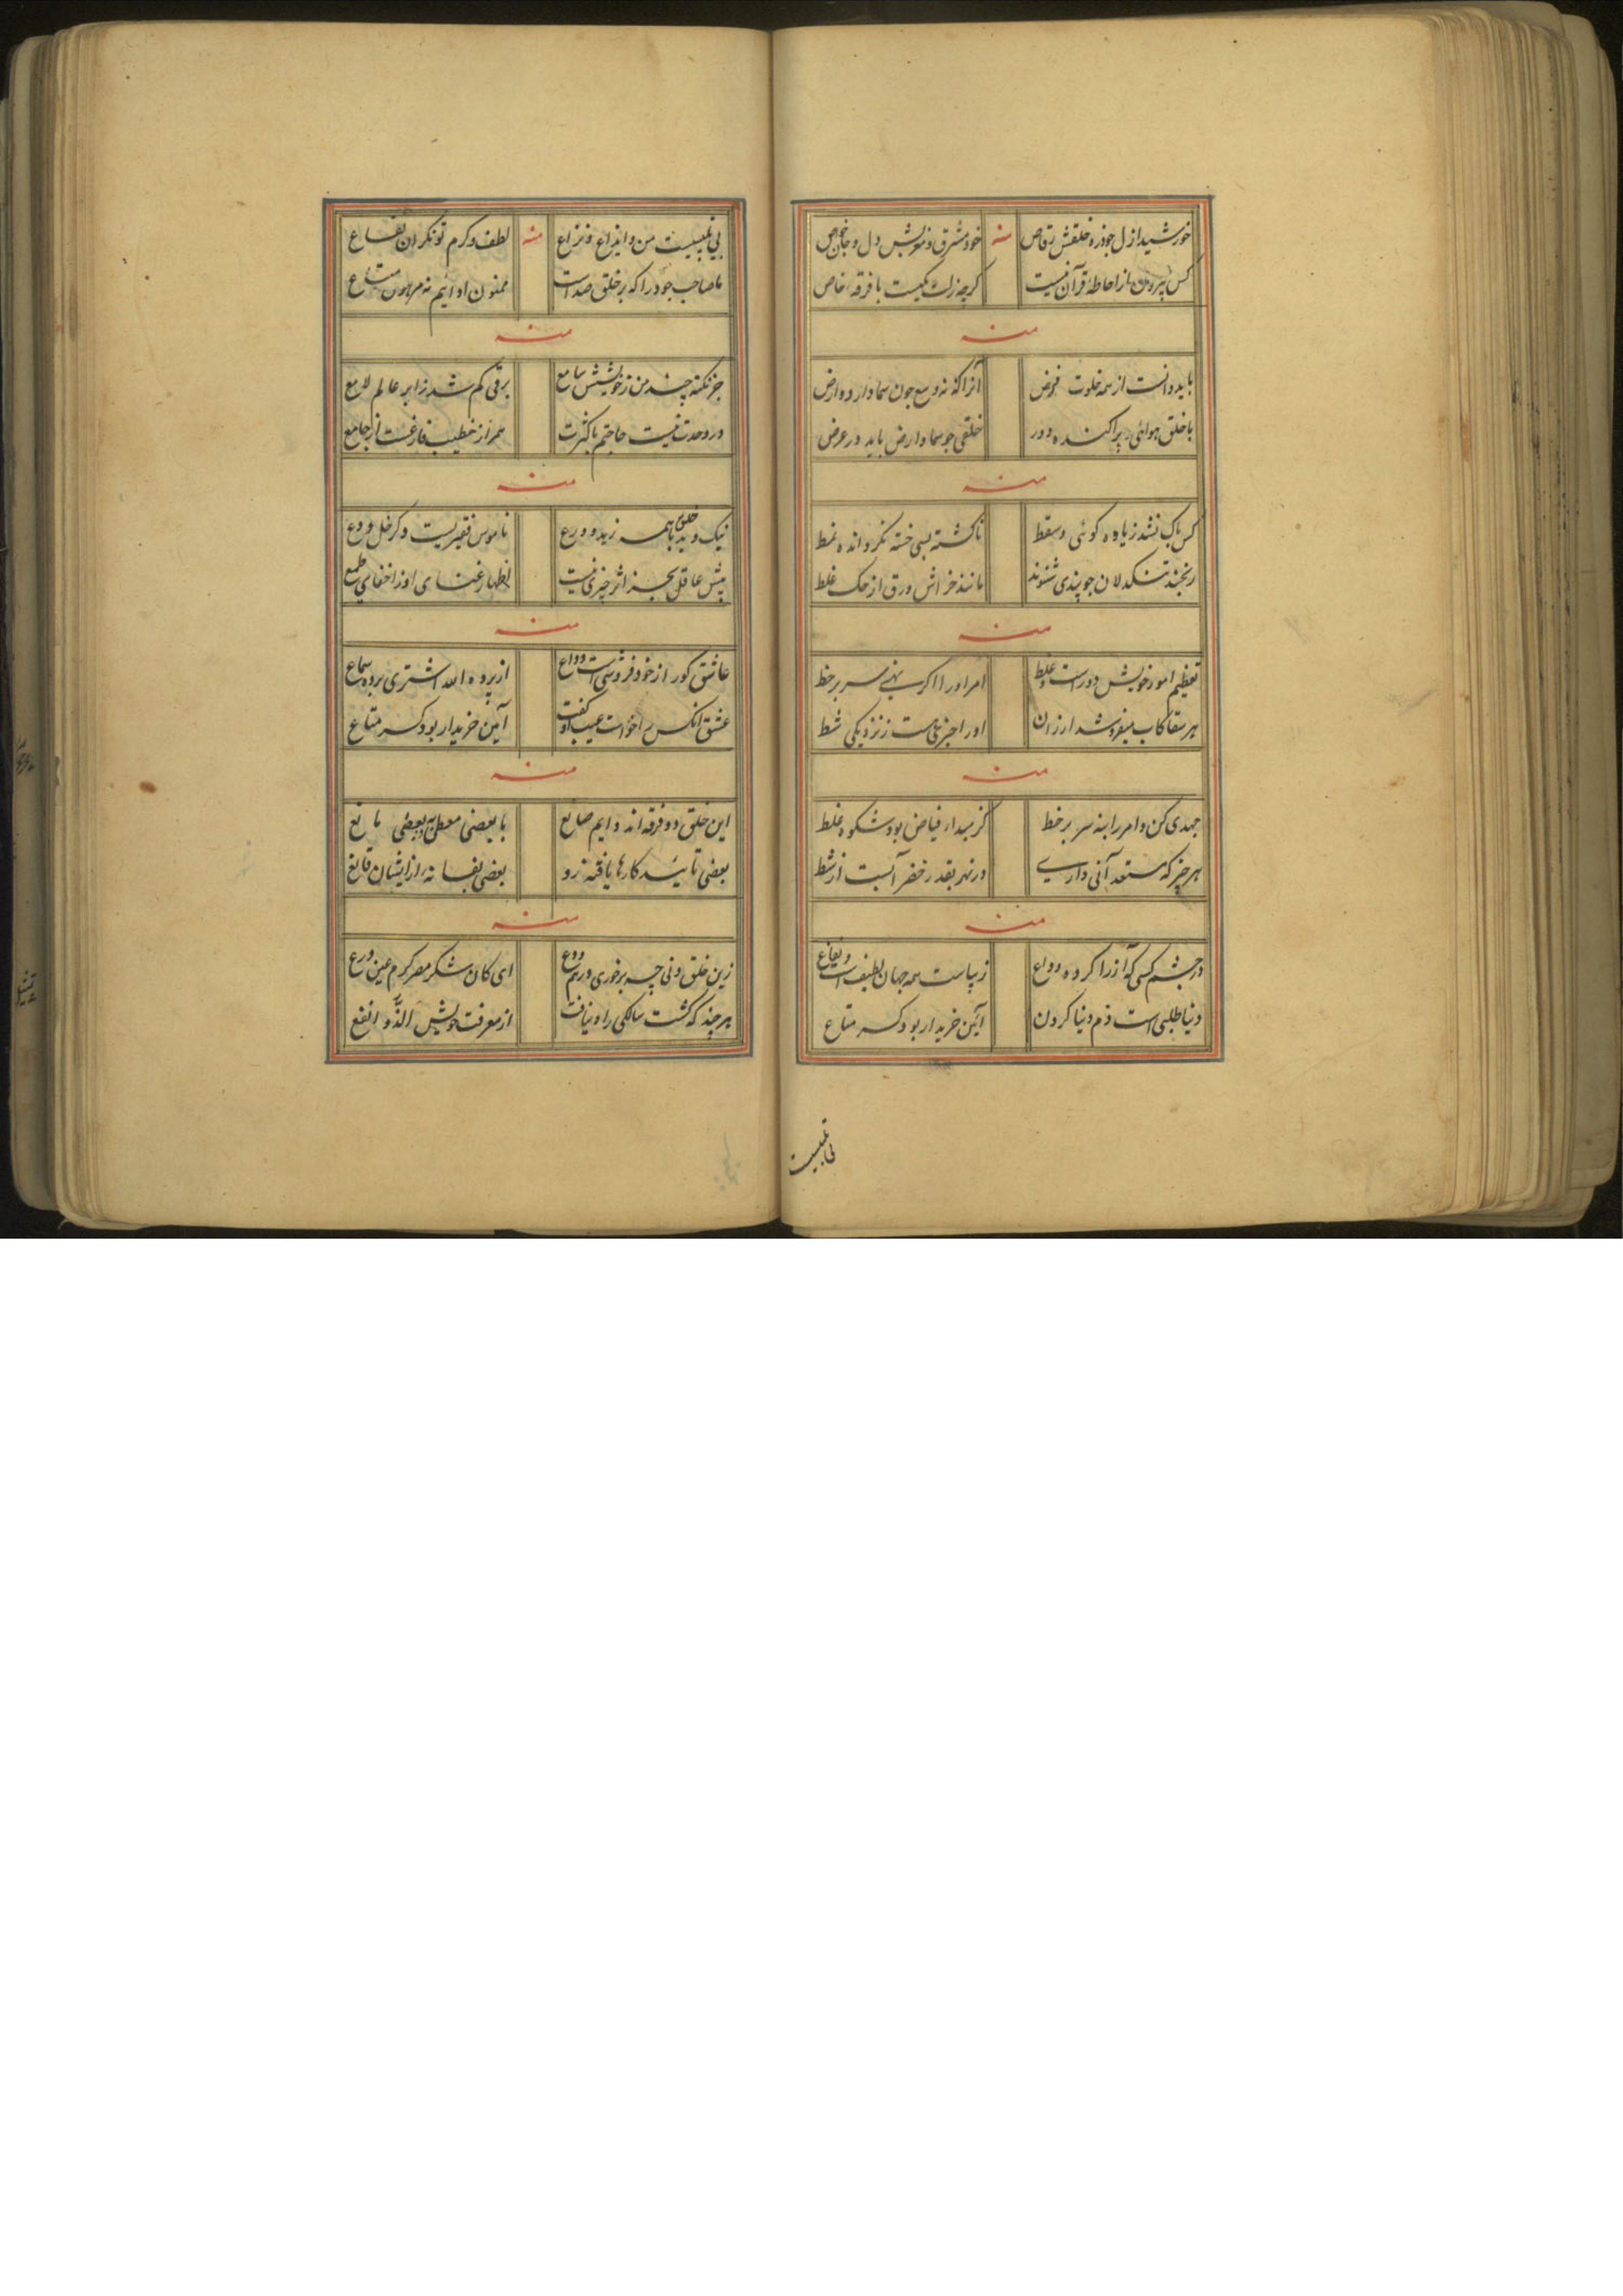 خورشید ازل چو ذره خلقش رقاص منه خود مشرق و مغربش دل و جان خواص
کس بیرون از احاطه قرآن نیست گرچه زلت یکیست با فرقه خاص
منه
باید دانست از همه خلوت فرض آنرا که نه وسع چون سما دارد و ارض
با خلق هوائی پراکنده و دور خلقی چو سما و ارض باید در عرض
منه
کس پاک نشد ز یاوه گوئی و سقط ناگشته بسی خسته نگرداند نمط
رنجند تنکدلان چو پندی شنوند مانند خراش ورق از حک غلط
منه
تعظیم امور خویش دور است و غلط امر او را اگر نهی سر بر خط
هر سقا کاب میفروشد ارزان او را خبری هست ز نزدیکی شط
منه
جهدی کن و امر را بنه سر بر خط کز مبداء فیاض بود شکوه غلط
هر چیز که مستعد آنی داری در نهر بقدر خضر آبست از شط
منه
در چشم کسی که آز را کرده وداع زیباست همه جهان لطیف است و بقاع
دنیا طلبی است ذم دنیا کردن آئین خریدار بود کسر متاع
بی تلبیست
بی تلبیست من و ایذاع و نزاع منه لطف و کرم توانگران نفاع
ما صاحب جود را که بر خلق صداست ممنون اوائیم نه مرهون متاع
منه
جز نکته چند من ز خویشش سامع برقی کم شد ز ابر عالم لامع
در وحدت نیست حاجتم با کثرت همراز خطیب فارغست از جامع
منه
نیک و بد خلق با همه زهد و ورع ناموس فقیریست و گر خل ودع
پیش عاقل بجز اثر چیزی نیست اظهار غنای او ز اخفای طمع
منه
عاشق کور از خود فروشی است وداع از پرده الله اشتری برده سماع
عشق آنکس را خواست عیب او گفت آئین خریدار بود کسر متاع
منه
این خلق دو فرقه‌اند دایم صانع با بعضی معطی به بعضی مانع
بعضی تائید کارها یافته زو بعضی بفسانه از ایشان قانع
منه
زین خلق دنی چه برخوری درهم ودع ای کان شکر مصر کرم عین ورع
هرچند که گشت سالکی راه نیافت از معرفت خویش الذ و انفع